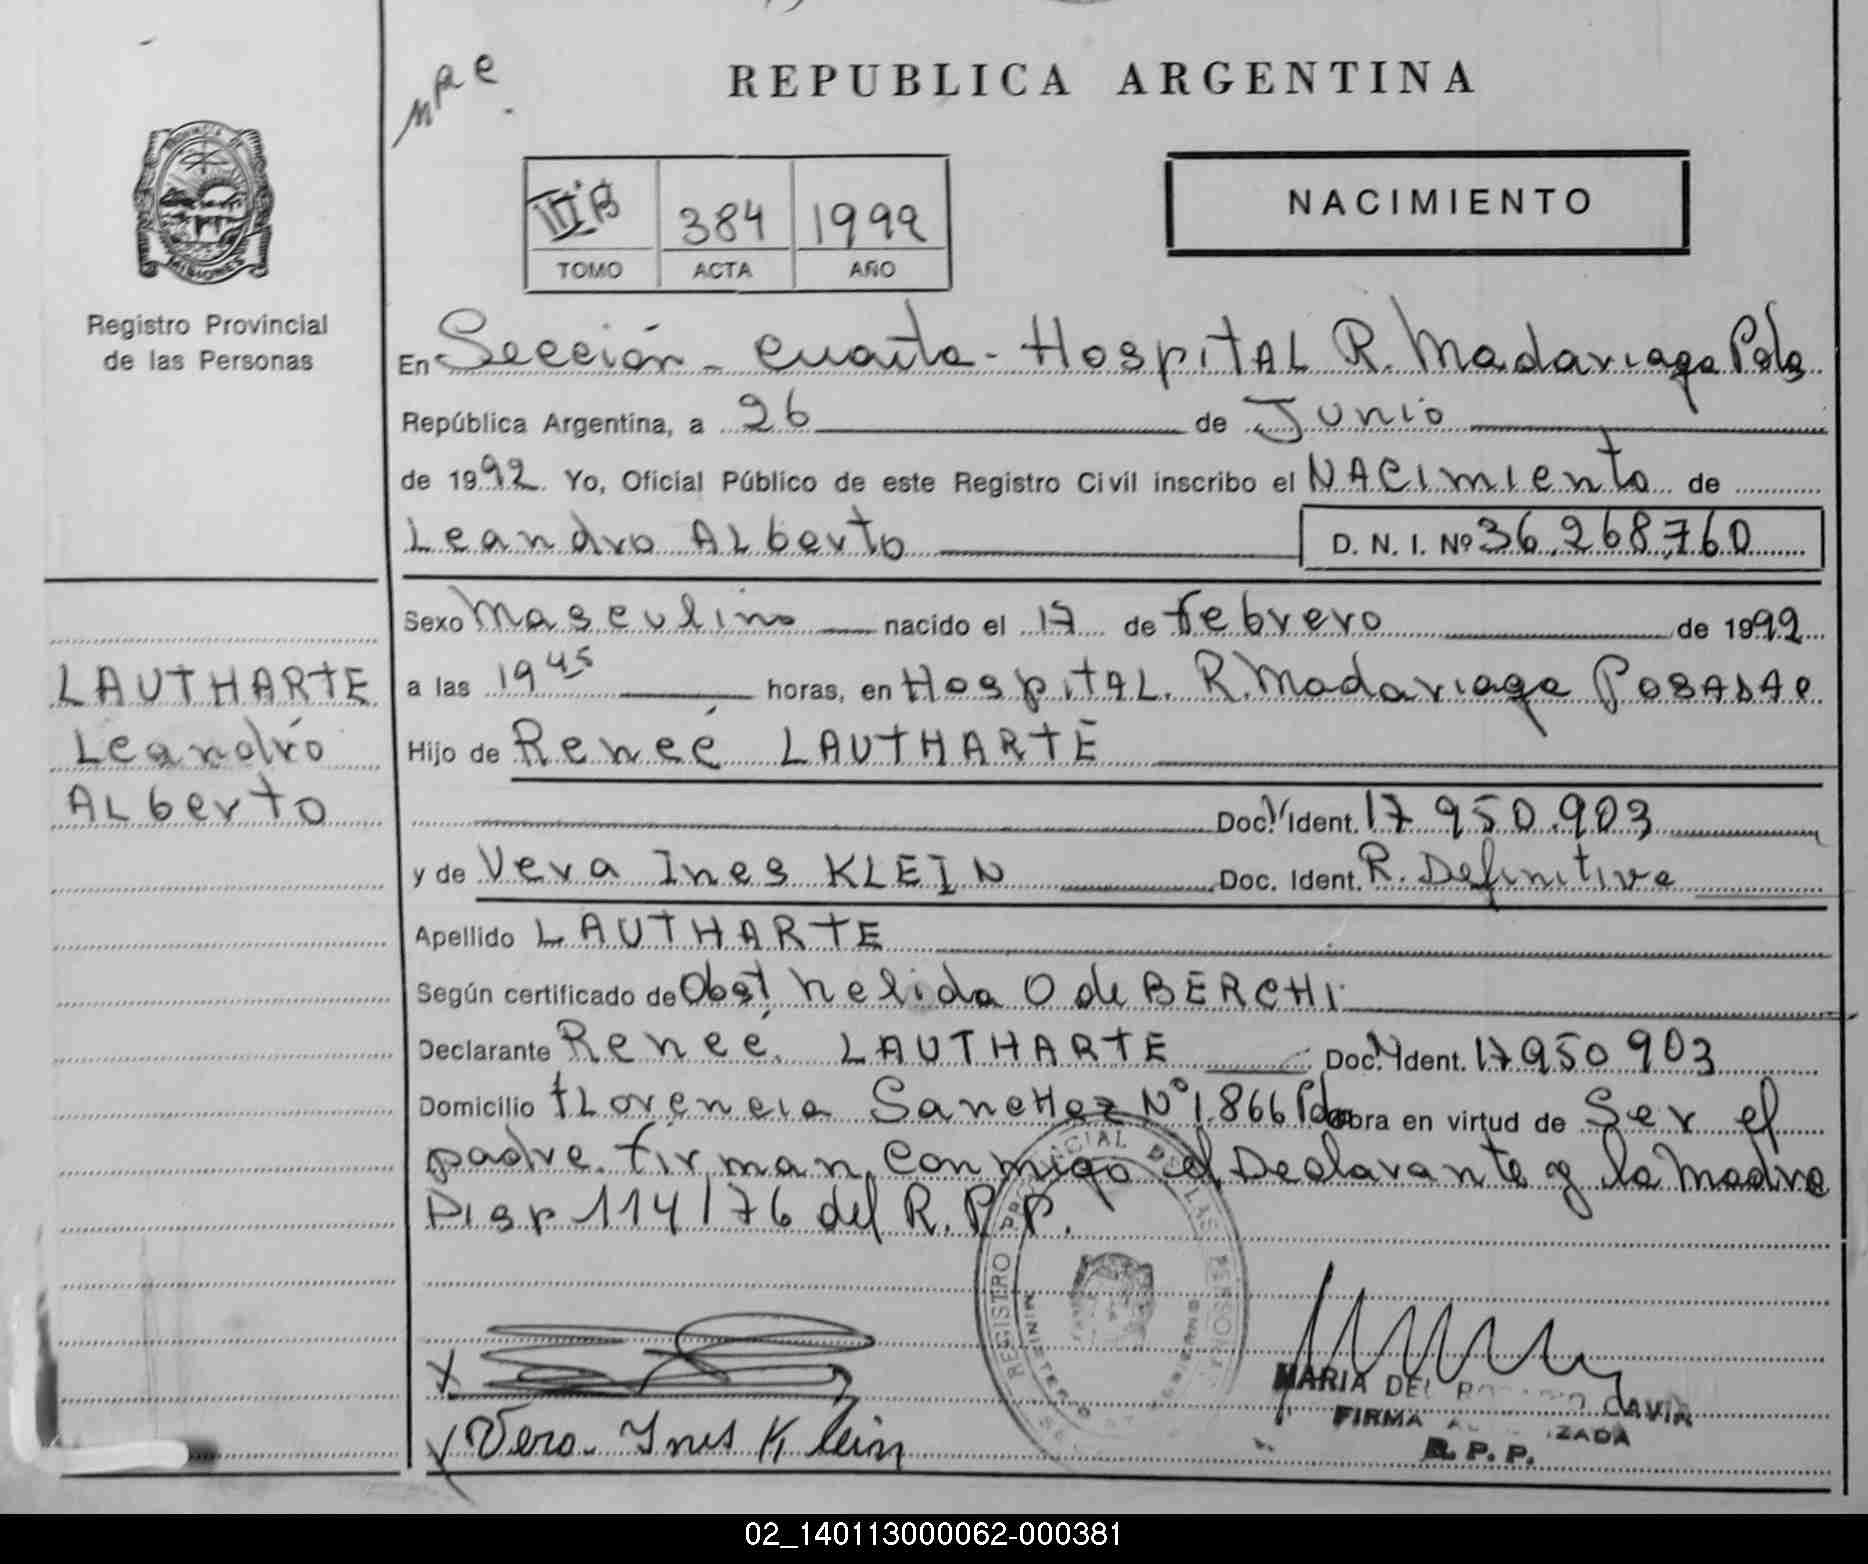 MRe.
REPUBLICA ARGENTINA
PROVINCIA DE MISIONES
Registro Provincial
de las Personas
III°B 384 1992
TOMO ACTA AÑO
NACIMIENTO
En Sección - Cuarta - Hospital R. Madariaga Pdas
República Argentina, a 26 de Junio
de 1992. Yo, Oficial Público de este Registro Civil inscribo el NACImiento de
Leandro ALberto D. N. I. Nº 36.268.760
Sexo Masculino nacido el 17 de febrero de 1992
a las 19 45 horas, en HospitAL. R. Madariaga POSADAS
Hijo de Reneé LAUTHARTE
Doc. Ident. 17 950.903
y de Vera Ines KLEIN Doc. Ident. R. Definitiva
Apellido LAUTHARTE
Según certificado de Obst Nelida O de BERCHI
Declarante Reneé LAUTHARTE Doc. Ident. 17950903
Domicilio fLorencia SancHez Nº 1.866 Pdas obra en virtud de Ser el
padre. firman conmigo el Declarante y la Madre
Disp 114/76 del R. P. P.
LAUTHARTE
Leandro
ALberto
REGISTRO PROVINCIAL DE LAS PERSONAS
MINISTERIO DE GOBIERNO
X
X Vera Ines Klein
MARIA DEL CAVIA
FIRMA AUTORIZADA
R. P. P.
02_140113000062-000381